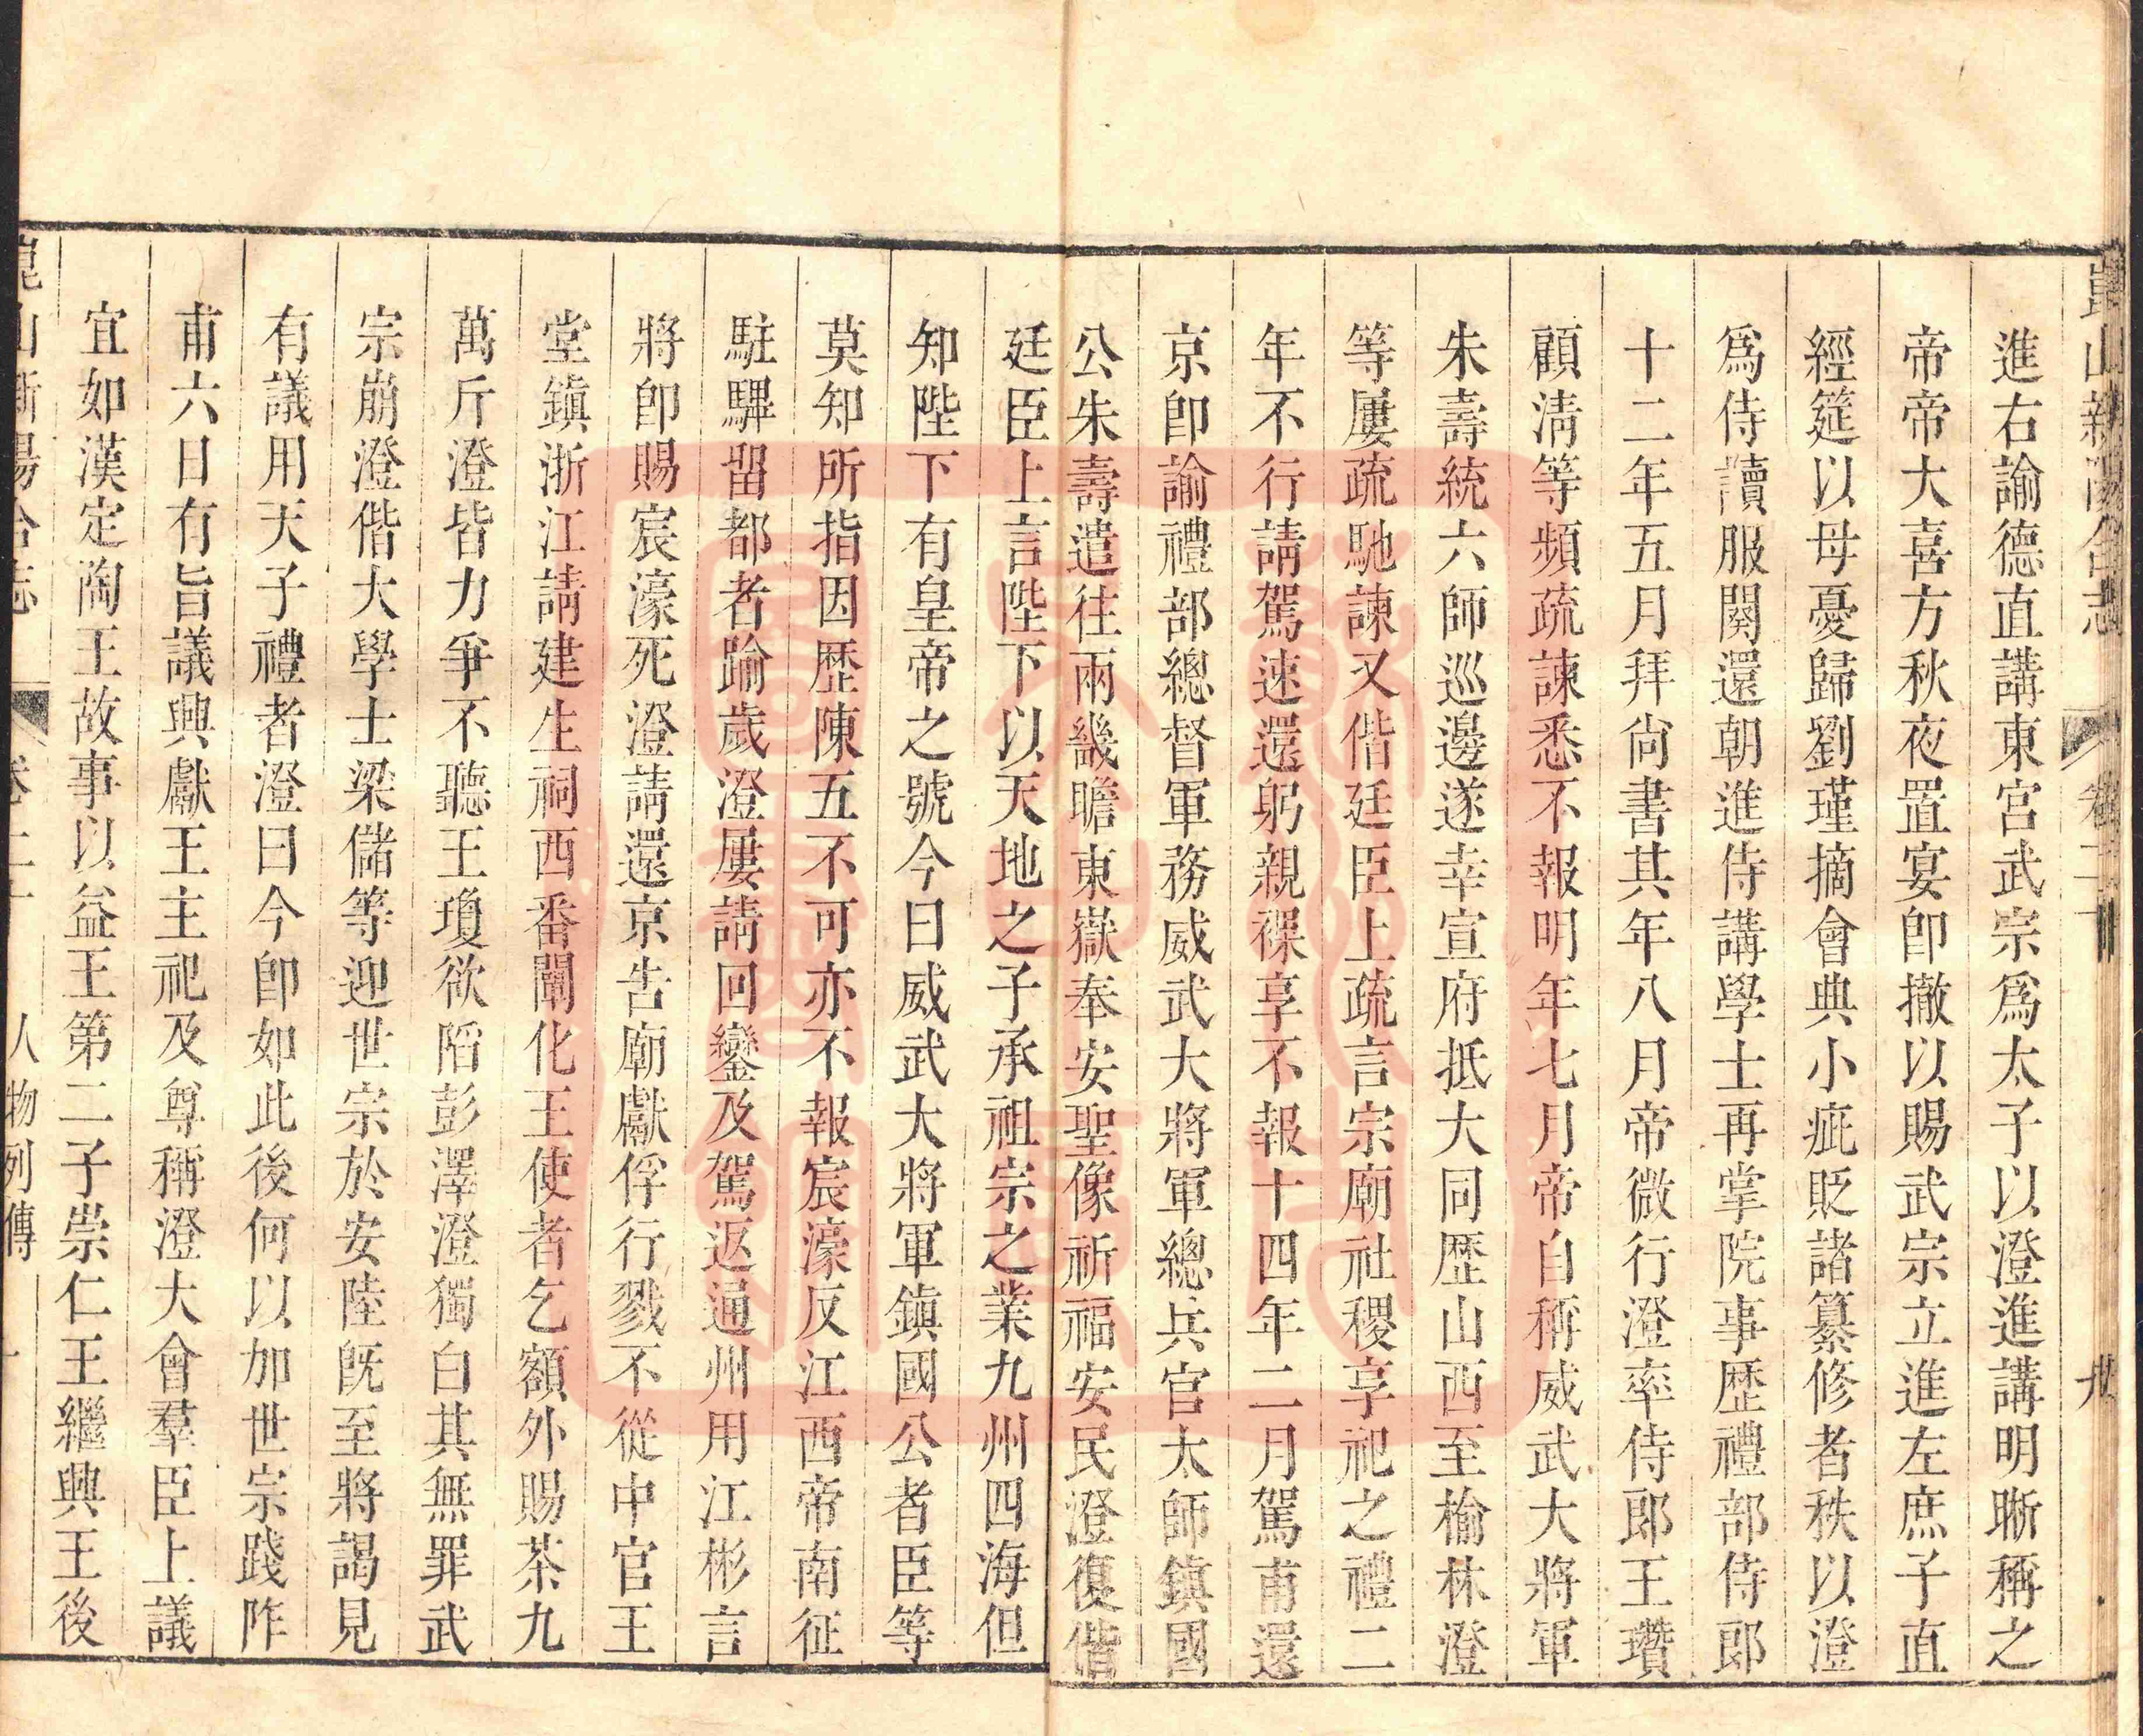 崑山新陽合志
卷二十
進右諭德直講東宮武宗爲太子以澄進講明晰稱之
帝帝大喜方秋夜置宴卽撤以賜武宗立進左庶子直
經筵以母憂歸劉瑾摘會典小疵貶諸纂修者秩以澄
爲侍讀服闋還朝進侍講學士再掌院事歷禮部侍郎
十二年五月拜尙書其年八月帝微行澄率侍郎王瓚
顧淸等頻疏諫悉不報明年七月帝自稱威武大將軍
朱壽統六師巡邊遂幸宣府抵大同歷山西至榆林澄
等屢疏馳諫又偕廷臣上疏言宗廟社稷享祀之禮二
年不行請駕速還躬親祼享不報十四年二月駕甫還
京卽諭禮部總督軍務威武大將軍總兵官太師鎮國
公朱壽遣往兩畿瞻東嶽奉安聖像祈福安民澄復偕
廷臣上言陛下以天地之子承祖宗之業九州四海但
知陛下有皇帝之號今曰威武大將軍鎮國公者臣等
莫知所指因歷陳五不可亦不報宸濠反江西帝南征
駐驆留都者踰歲澄屢請回鑾及駕返通州用江彬言
將卽賜宸濠死澄請還京告廟獻俘行戮不從中官王
堂鎮浙江請建生祠西番闡化王使者乞額外賜茶九
萬斤澄皆力爭不聽王瓊欲陷彭澤澄獨白其無罪武
宗崩澄偕大學士梁儲等迎世宗於安陸旣至將謁見
有議用天子禮者澄曰今卽如此後何以加世宗踐阼
甫六日有旨議興獻王主祀及尊稱澄大會羣臣上議
宜如漢定陶王故事以益王第二子崇仁王繼興王後
崑山新陽合志
卷二十
人物列傳